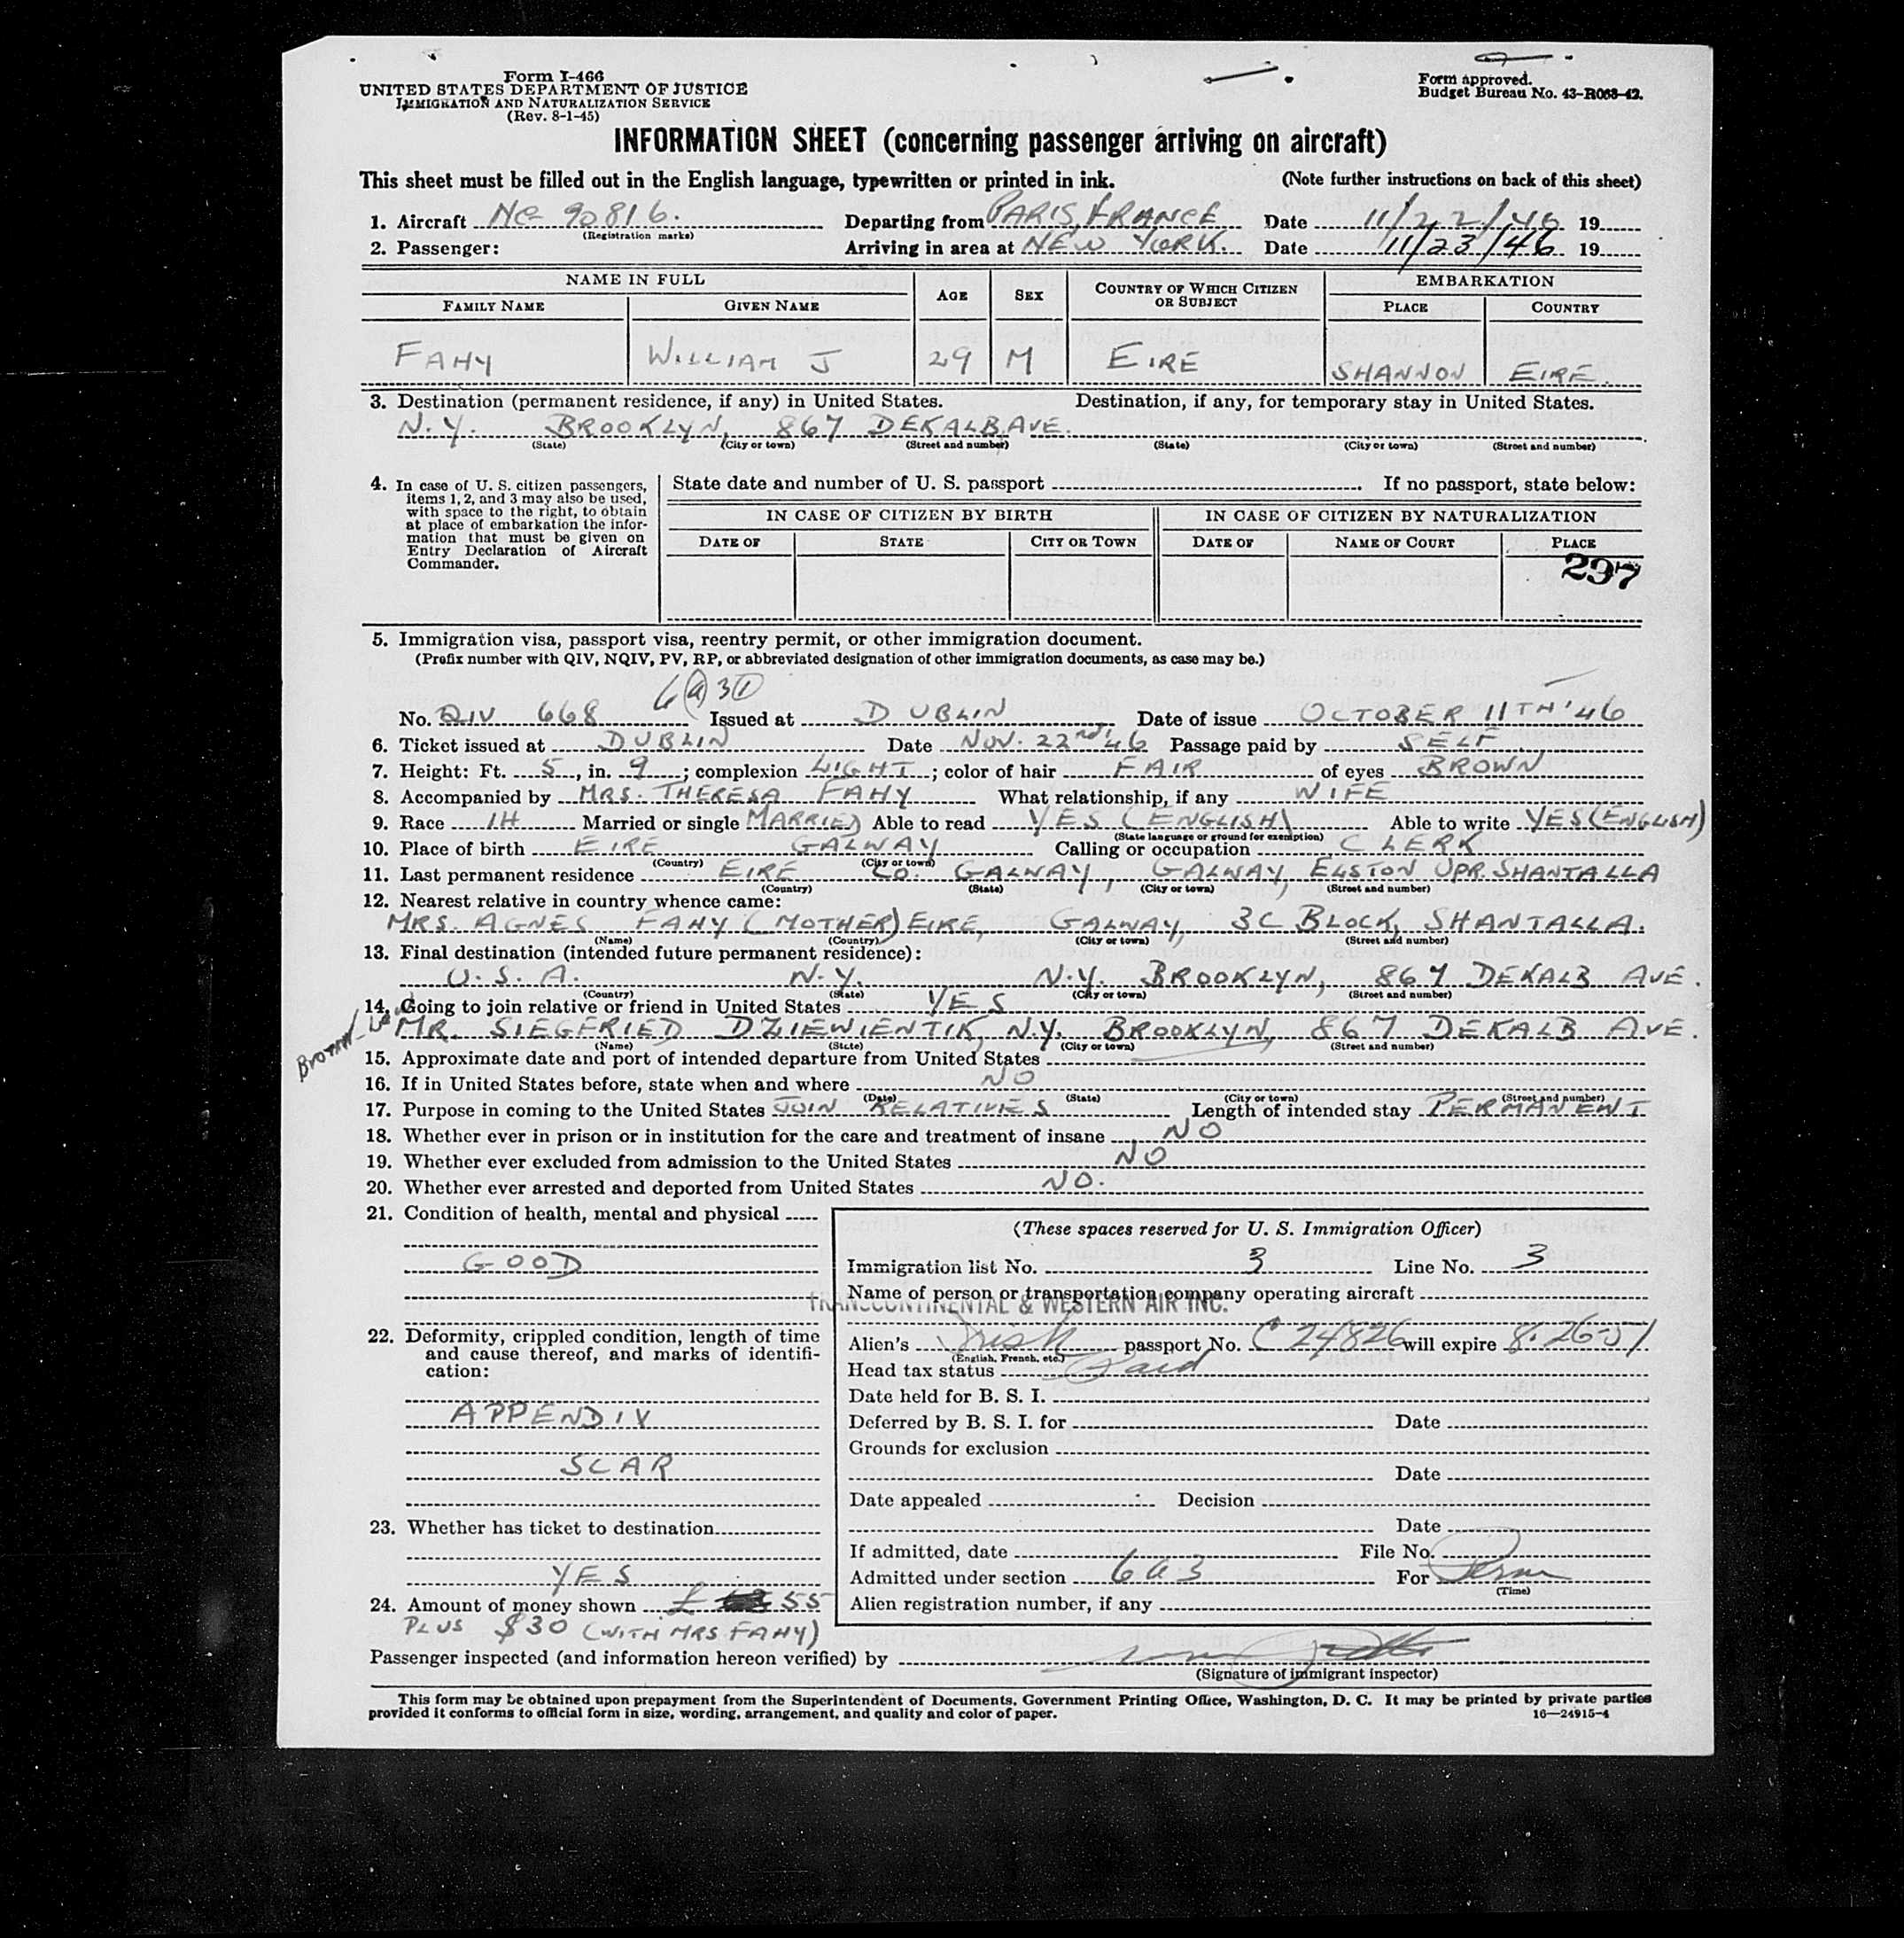 Form I-466
UNITED STATES DEPARTMENT OF JUSTICE
IMMIGRATION AND NATURALIZATION SERVICE
(Rev. 8-1-45)
Form approved.
Budget Bureau No. 43-R063-42.
INFORMATION SHEET (concerning passenger arriving on aircraft)
This sheet must be filled out in the English language, typewritten or printed in ink. (Note further instructions on back of this sheet)
1. Aircraft NC 90816. Departing from PARIS, FRANCE Date 11/22/46 19
(Registration marks)
2. Passenger: Arriving in area at NEW YORK. Date 11/23/46 19
NAME IN FULL AGE SEX COUNTRY OF WHICH CITIZEN OR SUBJECT EMBARKATION
FAMILY NAME GIVEN NAME PLACE COUNTRY
FAHY WILLIAM J 29 M EIRE SHANNON EIRE.
3. Destination (permanent residence, if any) in United States. Destination, if any, for temporary stay in United States.
N.Y. BROOKLYN, 867 DEKALB AVE.
(State) (City or town) (Street and number) (State) (City or town) (Street and number)
4. In case of U. S. citizen passengers, items 1, 2, and 3 may also be used, with space to the right, to obtain at place of embarkation the information that must be given on Entry Declaration of Aircraft Commander.
State date and number of U. S. passport If no passport, state below:
IN CASE OF CITIZEN BY BIRTH IN CASE OF CITIZEN BY NATURALIZATION
DATE OF STATE CITY OR TOWN DATE OF NAME OF COURT PLACE
237
5. Immigration visa, passport visa, reentry permit, or other immigration document.
(Prefix number with QIV, NQIV, PV, RP, or abbreviated designation of other immigration documents, as case may be.)
6 (a) 3 (1)
No. QIV 668 Issued at DUBLIN Date of issue OCTOBER 11TH '46
6. Ticket issued at DUBLIN Date NOV. 22nd '46 Passage paid by SELF
7. Height: Ft. 5, in. 9; complexion LIGHT; color of hair FAIR of eyes BROWN
8. Accompanied by MRS. THERESA FAHY What relationship, if any WIFE
9. Race IH Married or single MARRIED Able to read YES (ENGLISH) Able to write YES (ENGLISH)
(State language or ground for exemption)
10. Place of birth EIRE GALWAY Calling or occupation CLERK
(Country) (City or town)
11. Last permanent residence EIRE CO. GALWAY, GALWAY, ELSTON UPR. SHANTALLA
(Country) (State) (City or town) (Street and number)
12. Nearest relative in country whence came:
MRS. AGNES FAHY (MOTHER) EIRE, GALWAY, 3C BLOCK, SHANTALLA.
(Name) (Country) (City or town) (Street and number)
13. Final destination (intended future permanent residence):
U.S.A. N.Y. N.Y. BROOKLYN, 867 DEKALB AVE.
(Country) (State) (City or town) (Street and number)
14. Going to join relative or friend in United States YES
MR. SIEGFRIED DZIEWIENTIK, N.Y. BROOKLYN, 867 DEKALB AVE.
(Name) (State) (City or town) (Street and number)
15. Approximate date and port of intended departure from United States
16. If in United States before, state when and where NO
(Date) (State) (City or town) (Street and number)
17. Purpose in coming to the United States JOIN RELATIVES Length of intended stay PERMANENT
18. Whether ever in prison or in institution for the care and treatment of insane NO
19. Whether ever excluded from admission to the United States NO
20. Whether ever arrested and deported from United States NO.
21. Condition of health, mental and physical
GOOD
22. Deformity, crippled condition, length of time and cause thereof, and marks of identification:
APPENDIX
SCAR
23. Whether has ticket to destination
YES
24. Amount of money shown £ 55
PLUS $30 (WITH MRS FAHY)
(These spaces reserved for U. S. Immigration Officer)
Immigration list No. 3 Line No. 3
Name of person or transportation company operating aircraft
TRANSCONTINENTAL & WESTERN AIR INC.
Alien's Irish passport No. C 24826 will expire 8-26-51
(English, French, etc.)
Head tax status Paid
Date held for B. S. I.
Deferred by B. S. I. for Date
Grounds for exclusion
Date
Date appealed Decision
Date
If admitted, date File No.
Admitted under section 6 a 3 For Perm
(Time)
Alien registration number, if any
Passenger inspected (and information hereon verified) by
(Signature of immigrant inspector)
This form may be obtained upon prepayment from the Superintendent of Documents, Government Printing Office, Washington, D. C. It may be printed by private parties
provided it conforms to official form in size, wording, arrangement, and quality and color of paper. 16—24915-4